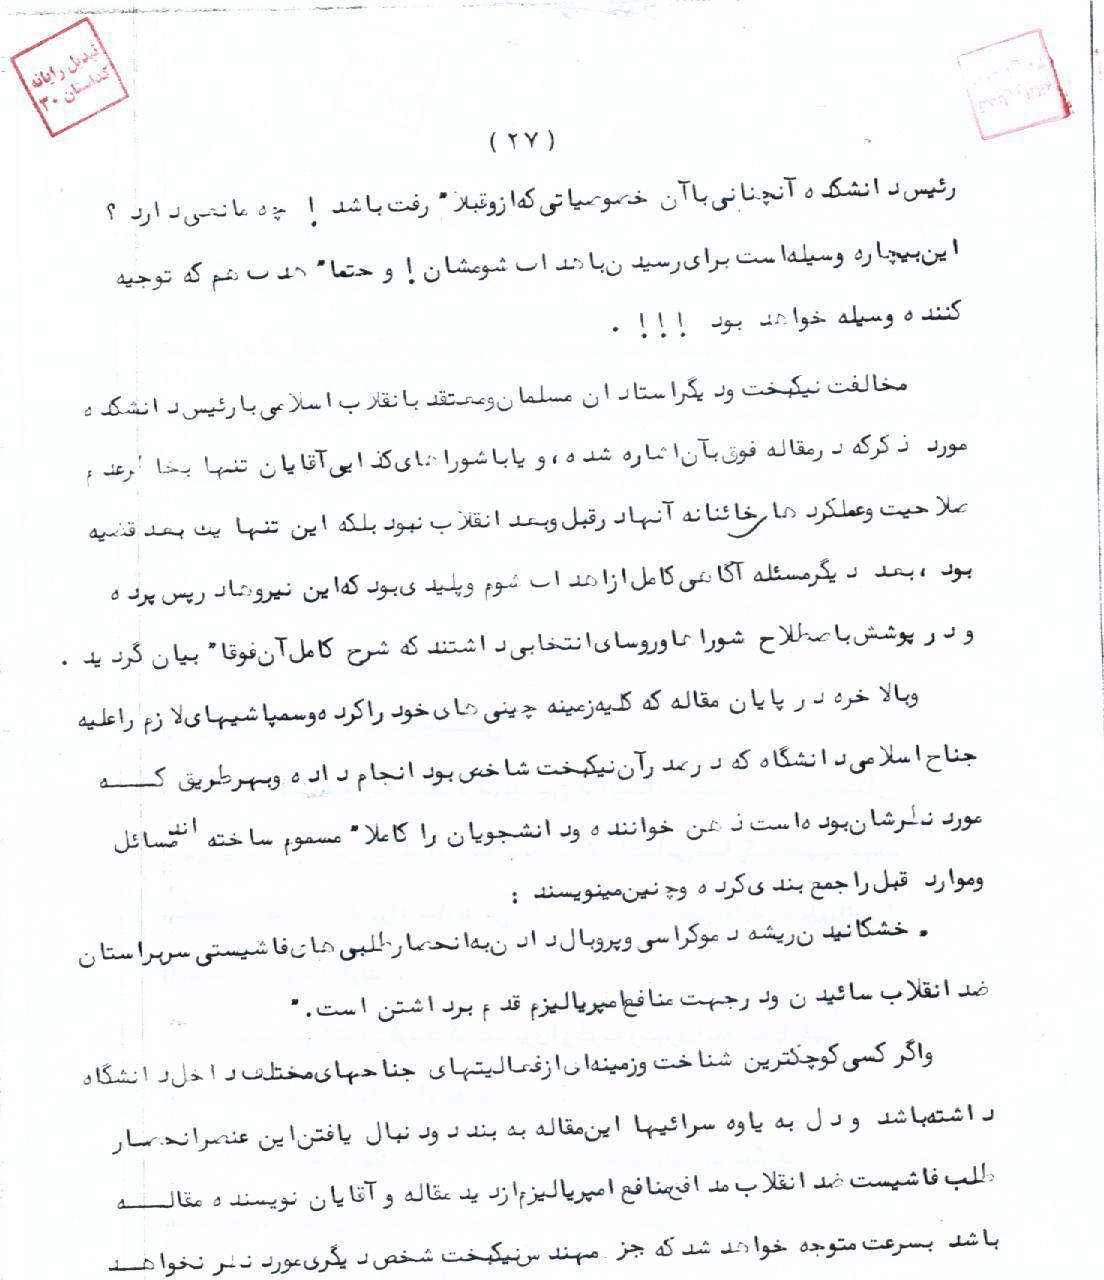 تبدیل رایانه
کداستان ۳۰
(۲۷)
رئیس دانشکده آنچنانی با آن خصوصیاتی که ازو قبلا" رفت باشد ! چه مانعی دارد ؟
این بیچاره وسیله است برای رسیدن باهداف شومشان ! و حتما" هدف هم که توجیه
کننده وسیله خواهد بود !!! .
مخالفت نیکبخت ودیگر استادان مسلمان ومعتقد بانقلاب اسلامی با رئیس دانشکده
مورد ذکر که در مقاله فوق بآن اشاره شده ، و یا با شوراهای کذایی آقایان تنها بخاطر عدم
صلاحیت وعملکردهای خائنانه آنها در قبل وبعد انقلاب نبود بلکه این تنها یک بعد قضیه
بود ، بعد دیگر مسئله آگاهی کامل از اهداف شوم وپلیدی بود که این نیروها در پس پرده
و در پوشش باصطلاح شوراها وروسای انتخابی داشتند که شرح کامل آن فوقا" بیان گردید .
وبالاخره در پایان مقاله که کلیه زمینه چینی های خود را کرده وسمپاشیهای لازم را علیه
جناح اسلامی دانشگاه که در صدر آن نیکبخت شاخص بود انجام داده وبهر طریق کـــه
مورد نظرشان بوده است ذهن خواننده ودانشجویان را کاملا" مسموم ساخته اند مسائل
وموارد قبل را جمع بندی کرده وچنین مینویسند :
" خشکانیدن ریشه دموکراسی وپروبال دادن به انحصارطلبی های فاشیستی سر بر آستان
ضد انقلاب سائیدن ودر جهت منافع امپریالیزم قدم برداشتن است . "
واگر کسی کوچکترین شناخت وزمینه ای از فعالیتهای جناحهای مختلف داخل دانشگاه
داشته باشد ودل به یاوه سرائیها این مقاله به بندد ودنبال یافتن این عنصر انحصار
طلب فاشیست ضد انقلاب مدافع منافع امپریالیزم از دید مقاله و آقایان نویسنده مقالـــه
باشد بسرعت متوجه خواهد شد که جز مهندس نیکبخت شخص دیگری مورد نظر نخواهـــد